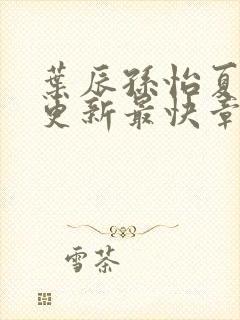 葉辰孫怡夏
更新最快章
雪茶